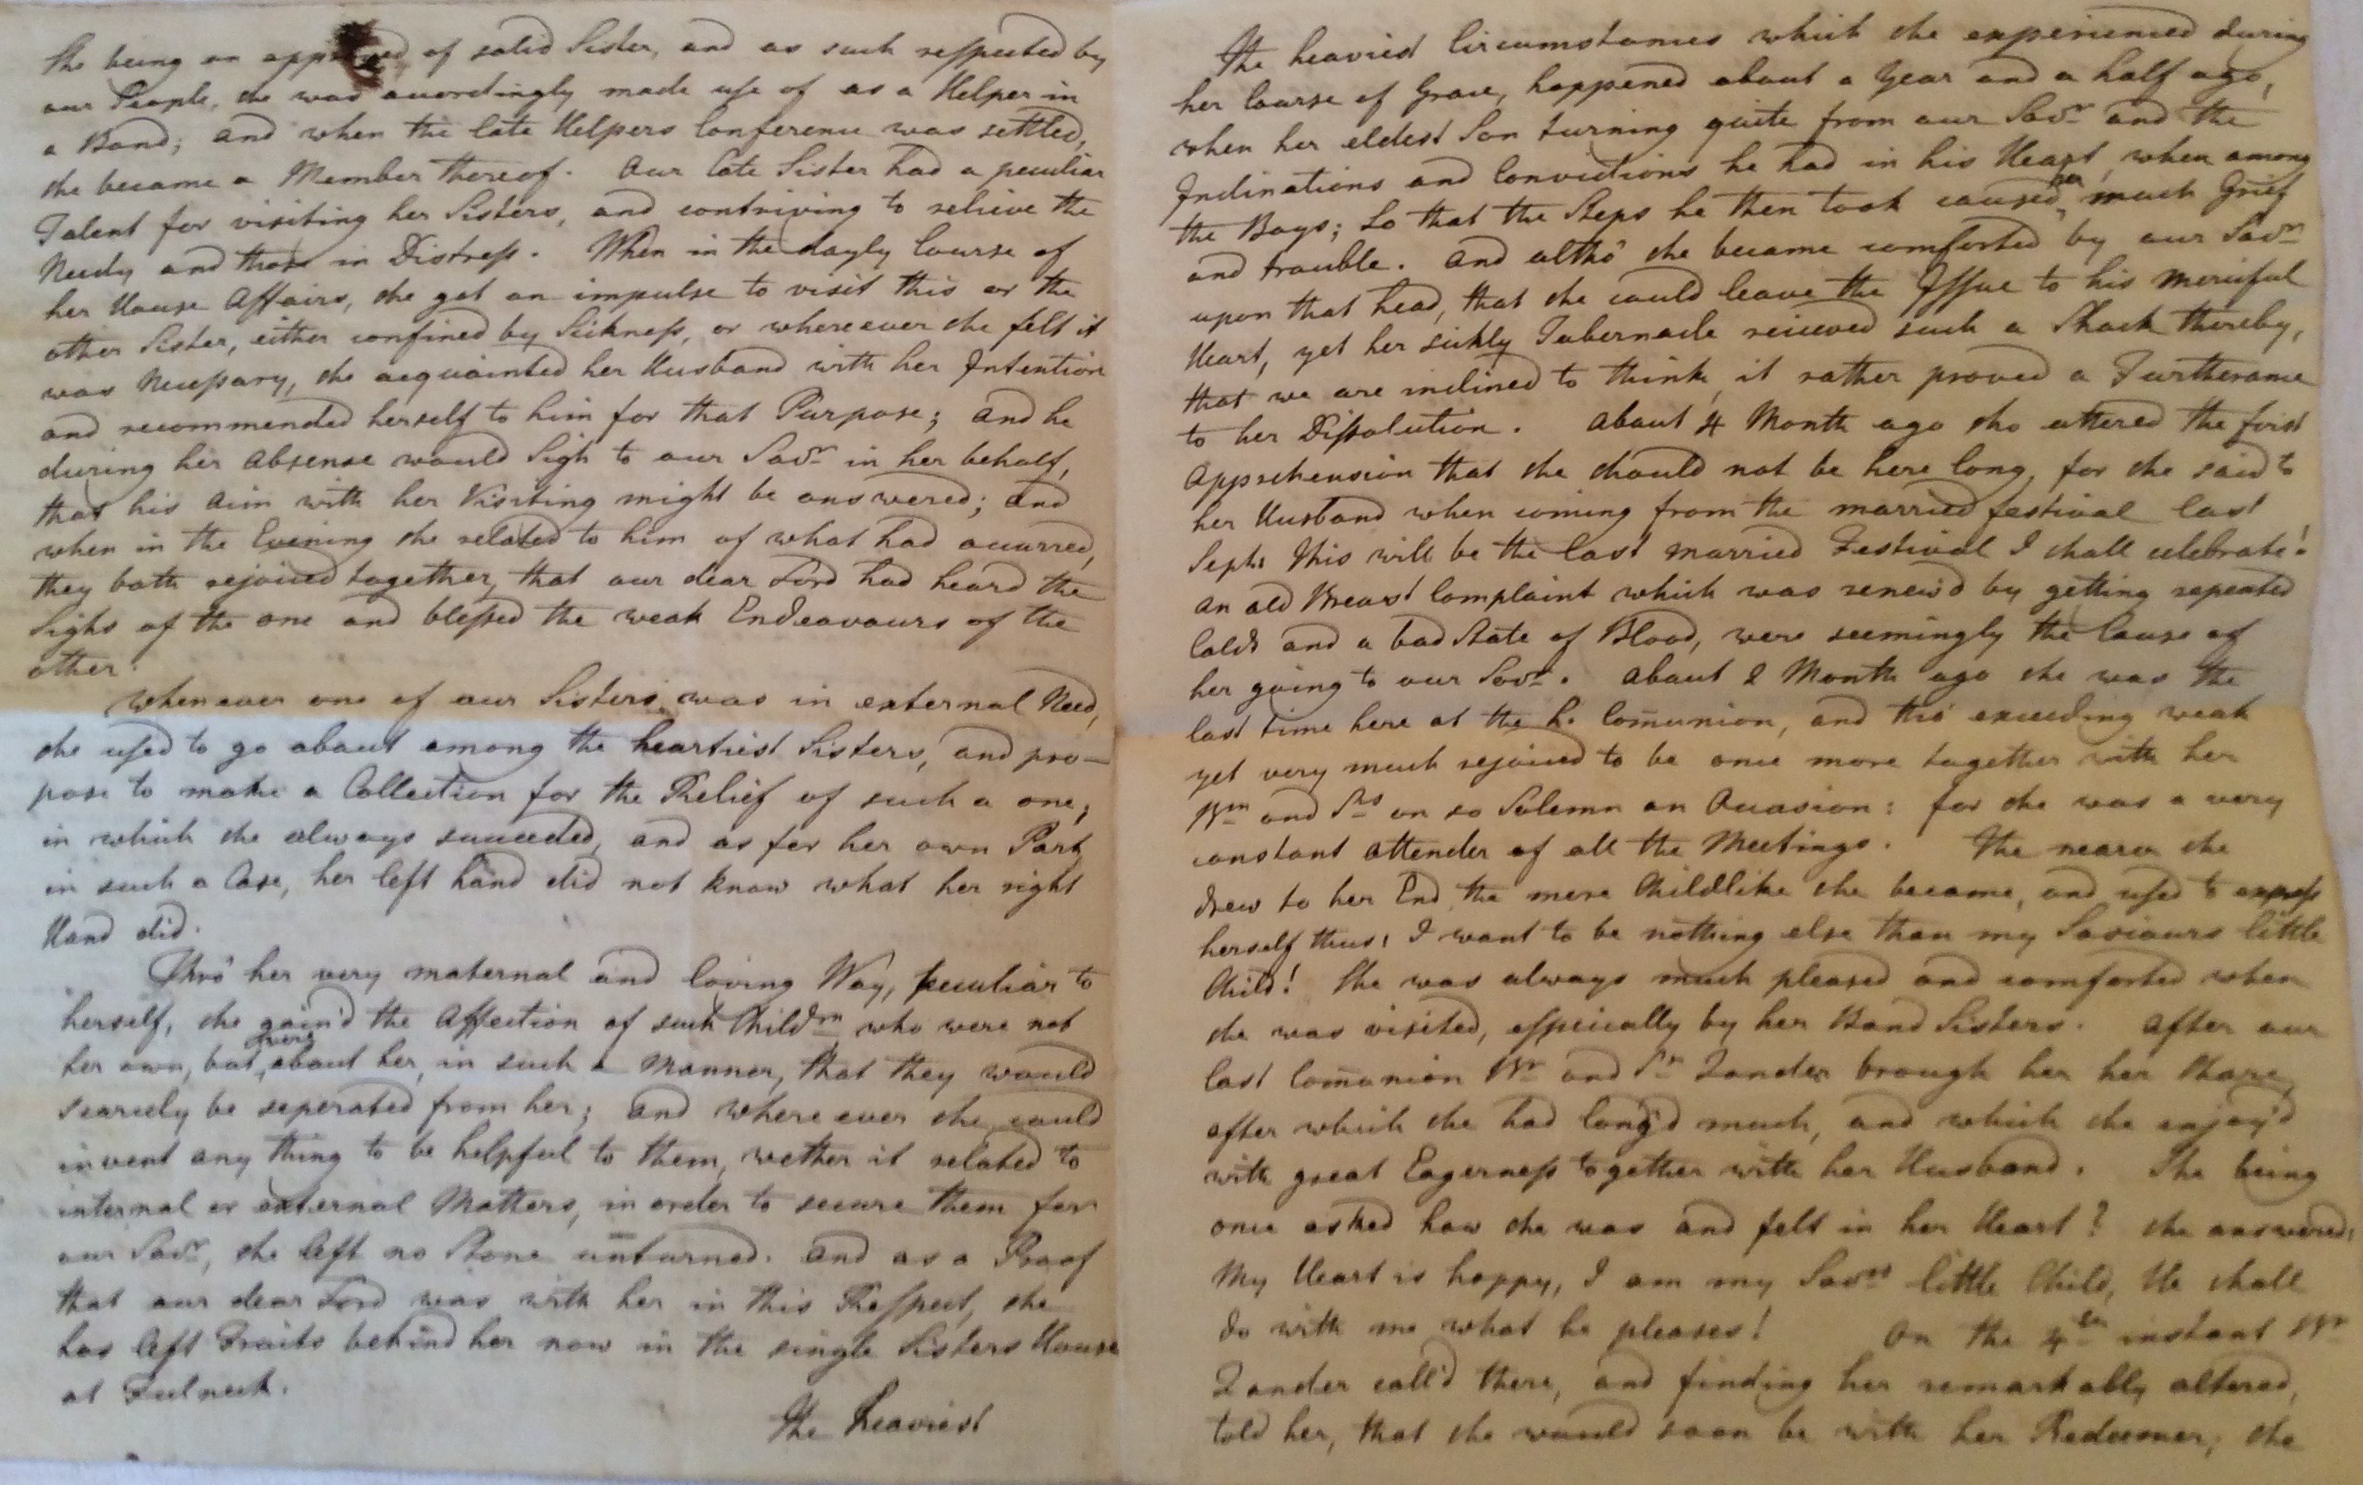 She being an app of solid Sister, and as such respected by
our People, she was accordingly made use of as a Helper in
a Band; and when the late Helpers Conference was settled,
she became a Member thereof. Our late Sister had a peculiar
Talent for visiting her Sisters, and contriving to relieve the
Needy and those in Distress. When in the dayly Course of
her House Affairs, she got an impulse to visit this or the
other Sister, either confined by Sickness, or whereever she felt it
was Necessary, she acquainted her Husband with her Intention
and recommended herself to him for that Purpose; and he
during her Absense would Sigh to our Savr in her behalf,
that his Aim with her Visiting might be answered; and
when in the Evening she related to him of what had occurred,
they both rejoiced together, that our dear Lord had heard the
Sighs of the one and blessed the weak Endeavours of the
other.
Whenever one of our Sisters was in external Need,
she used to go about among the heartiest Sisters, and pro-
pose to make a Collection for the Relief of such a one,
in which she always succeeded, and as for her own Part
in such a Case, her left hand did not know what her right
Hand did.
Thro' her very maternal and loving Way, peculiar to
herself, she gain'd the Affection of such Childrn who were not
her own, but were about her, in such a Manner, that they would
scarcely be seperated from her; and where ever she could
invent any thing to be helpful to them, wether it related to
internal or external Matters, in order to secure them for
our Savr, she left no Stone unturned. And as a Proof
that our dear Lord was with her in this Respect, she
has left Fruits behind her now in the single Sisters House
at Fulneck.
The heaviest
The heaviest Circumstances which she experienced during
her Course of Grace, happened about a Year and a half ago,
when her eldest Son turning quite from our Savr and the
Inclinations and Convictions he had in his Heart, when among
the Boys; So that the Steps he then took caused her much Grief
and trouble. And altho' she became comforted by our Savr
upon that head, that she could leave the Issue to his merciful
Heart, yet her sickly Tabernacle recieved such a Shock thereby,
that we are inclined to think, it rather proved a Furtherance
to her Dissolution. About 4 Month ago she uttered the first
Apprehension that she should not be here long, for she said to
her Husband when coming from the married festival last
Sept: This will be the last married Festival I shall celebrate!
An old Breast Complaint which was renew'd by getting repeated
Colds and a bad State of Blood, were seemingly the Cause of
her going to our Savr. About 2 Month ago she was the
last time here at the h. Com̄union, and tho' exceeding weak
yet very much rejoiced to be once more together with her
Brn and Srs on so Solemn an Occasion: for she was a very
constant Attender of all the Meetings. The nearer she
drew to her End, the more Childlike she became, and used to express
herself thus: I want to be nothing else than my Saviours little
Child! She was always much pleased and comforted when
she was visited, especially by her Band Sisters. After our
last Com̄union Br and Sr Zander brough her her Share,
after which she had long'd much, and which she enjoy'd
with great Eagerness together with her Husband. She being
once asked how she was and felt in her Heart? she answered:
My Heart is happy, I am my Savrs little Child, He shall
do with me what he pleases! On the 4th instant Br
Zander call'd there, and finding her remarkably altered,
told her, that she would soon be with her Redeemer, she